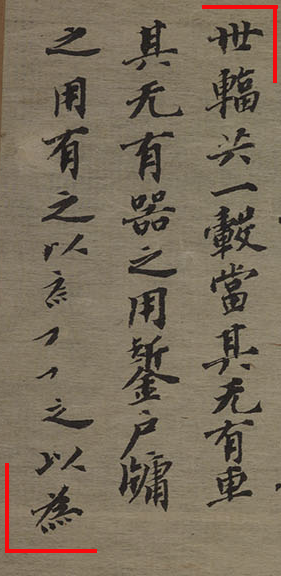 卅輻共一轂當其无有車
其无有器之用鑿戶牖
之用有之以之以為